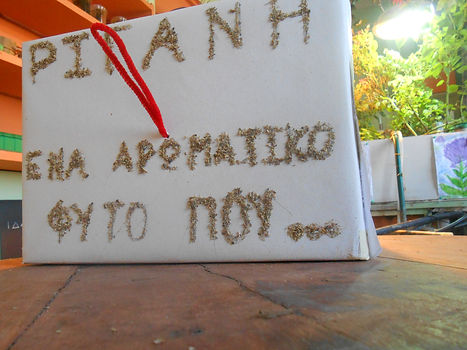 ΡΙΓΑΝΗ
ΕΝΑ ΑΡΩΜΑΤΙΚΟ
ΦΥΤΟ ΠΟΥ...